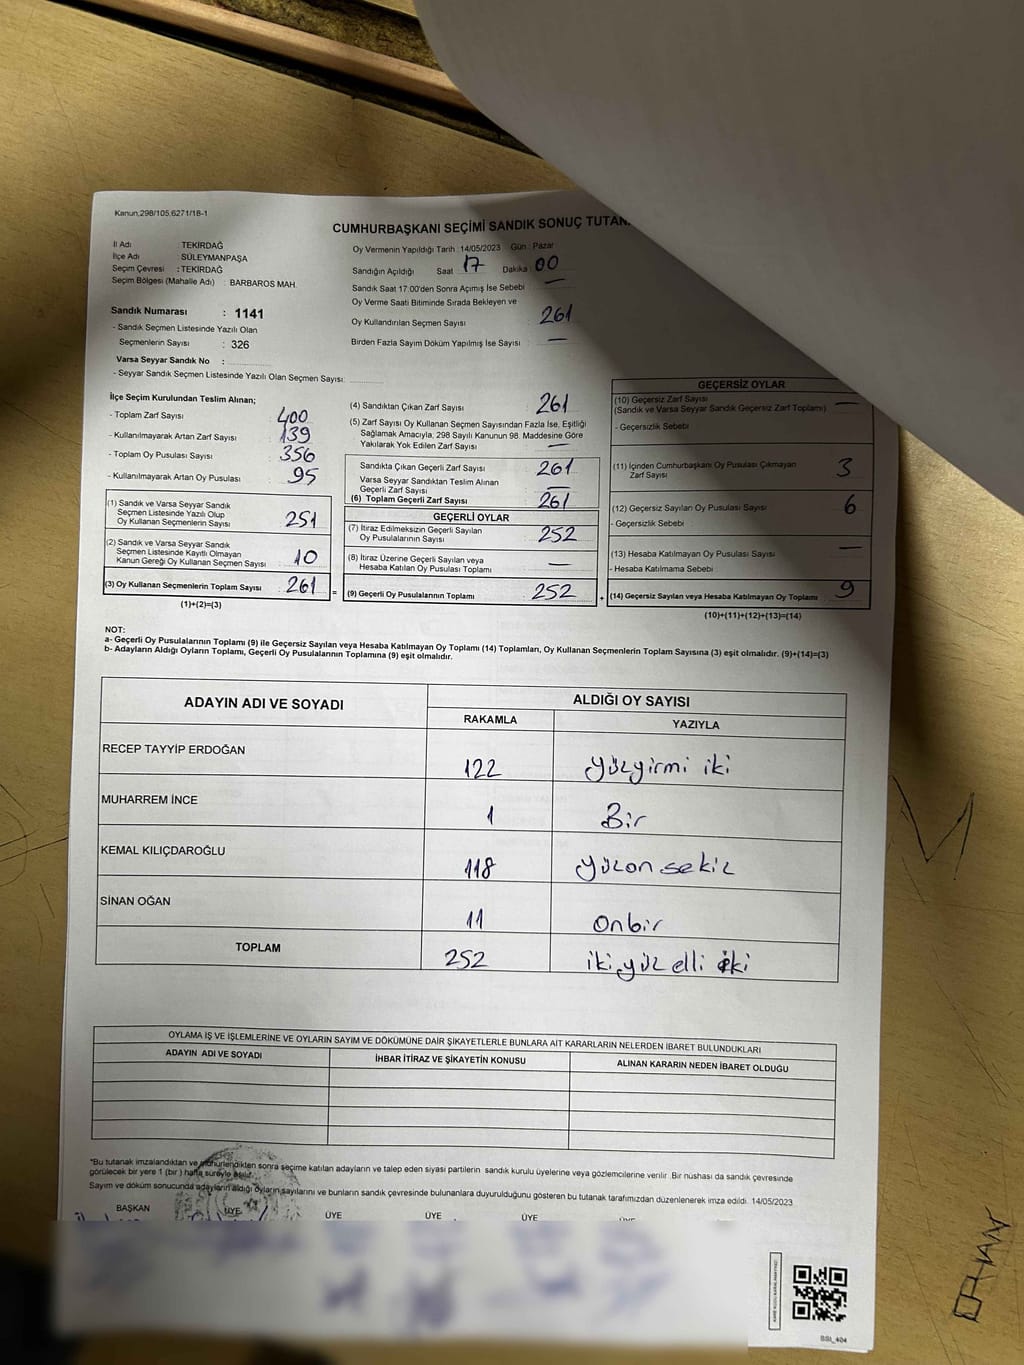 Kanun.298/105,6271/18-1
CUMHURBAŞKANI SEÇİMİ SANDIK SONUÇ TUTAN
İl Adı : TEKİRDAĞ
İlçe Adı : SÜLEYMANPAŞA
Seçim Çevresi : TEKİRDAĞ
Seçim Bölgesi (Mahalle Adı) : BARBAROS MAH.
Oy Vermenin Yapıldığı Tarih :14/05/2023 Gün : Pazar
Sandığın Açıldığı Saat 17 Dakika : 00
Sandık Saat 17.00'den Sonra Açımış İse Sebebi : —
Oy Verme Saati Bitiminde Sırada Bekleyen ve
Oy Kullandırılan Seçmen Sayısı : 261
Birden Fazla Sayım Döküm Yapılmış İse Sayısı : —
Sandık Numarası : 1141
- Sandık Seçmen Listesinde Yazılı Olan
Seçmenlerin Sayısı : 326
Varsa Seyyar Sandık No :
- Seyyar Sandık Seçmen Listesinde Yazılı Olan Seçmen Sayısı:
İlçe Seçim Kurulundan Teslim Alınan;
- Toplam Zarf Sayısı : 400
- Kullanılmayarak Artan Zarf Sayısı : 139
- Toplam Oy Pusulası Sayısı : 356
- Kullanılmayarak Artan Oy Pusulası : 95
(1) Sandık ve Varsa Seyyar Sandık
Seçmen Listesinde Yazılı Olup
Oy Kullanan Seçmenlerin Sayısı : 251
(2) Sandık ve Varsa Seyyar Sandık
Seçmen Listesinde Kayıtlı Olmayan
Kanun Gereği Oy Kullanan Seçmen Sayısı : 10
(3) Oy Kullanan Seçmenlerin Toplam Sayısı : 261
(1)+(2)=(3)
(4) Sandıktan Çıkan Zarf Sayısı : 261
(5) Zarf Sayısı Oy Kullanan Seçmen Sayısından Fazla İse, Eşitliği
Sağlamak Amacıyla, 298 Sayılı Kanunun 98. Maddesine Göre
Yakılarak Yok Edilen Zarf Sayısı : —
Sandıkta Çıkan Geçerli Zarf Sayısı : 261
Varsa Seyyar Sandıktan Teslim Alınan
Geçerli Zarf Sayısı : —
(6) Toplam Geçerli Zarf Sayısı : 261
GEÇERLİ OYLAR
(7) İtiraz Edilmeksizin Geçerli Sayılan
Oy Pusulalarının Sayısı : 252
(8) İtiraz Üzerine Geçerli Sayılan veya
Hesaba Katılan Oy Pusulası Toplamı : —
= (9) Geçerli Oy Pusulalarının Toplamı : 252
GEÇERSİZ OYLAR
(10) Geçersiz Zarf Sayısı : —
(Sandık ve Varsa Seyyar Sandık Geçersiz Zarf Toplamı)
- Geçersizlik Sebebi
(11) İçinden Cumhurbaşkanı Oy Pusulası Çıkmayan
Zarf Sayısı : 3
(12) Geçersiz Sayılan Oy Pusulası Sayısı : 6
- Geçersizlik Sebebi :
(13) Hesaba Katılmayan Oy Pusulası Sayısı : —
- Hesaba Katılmama Sebebi :
+ (14) Geçersiz Sayılan veya Hesaba Katılmayan Oy Toplamı : 9
(10)+(11)+(12)+(13)=(14)
NOT:
a- Geçerli Oy Pusulalarının Toplamı (9) ile Geçersiz Sayılan veya Hesaba Katılmayan Oy Toplamı (14) Toplamları, Oy Kullanan Seçmenlerin Toplam Sayısına (3) eşit olmalıdır. (9)+(14)=(3)
b- Adayların Aldığı Oyların Toplamı, Geçerli Oy Pusulalarının Toplamına (9) eşit olmalıdır.
ADAYIN ADI VE SOYADI ALDIĞI OY SAYISI
RAKAMLA YAZIYLA
RECEP TAYYİP ERDOĞAN 122 yüzyirmi iki
MUHARREM İNCE 1 Bir
KEMAL KILIÇDAROĞLU 118 yüzon sekiz
SİNAN OĞAN 11 Onbir
TOPLAM 252 iki yüz elli iki
OYLAMA İŞ VE İŞLEMLERİNE VE OYLARIN SAYIM VE DÖKÜMÜNE DAİR ŞİKAYETLERLE BUNLARA AİT KARARLARIN NELERDEN İBARET BULUNDUKLARI
ADAYIN ADI VE SOYADI İHBAR İTİRAZ VE ŞİKAYETİN KONUSU ALINAN KARARIN NEDEN İBARET OLDUĞU
*Bu tutanak imzalandıktan ve mühürlendikten sonra seçime katılan adayların ve talep eden siyasi partilerin sandık kurulu üyelerine veya gözlemcilerine verilir. Bir nüshası da sandık çevresinde
görülecek bir yere 1 (bir) hafta süreyle asılır.
Sayım ve döküm sonucunda adayların aldığı oyların sayılarını ve bunların sandık çevresinde bulunanlara duyurulduğunu gösteren bu tutanak tarafımızdan düzenlenerek imza edildi. 14/05/2023
BAŞKAN ÜYE ÜYE ÜYE ÜYE ÜYE
BSI_404
ORHAN